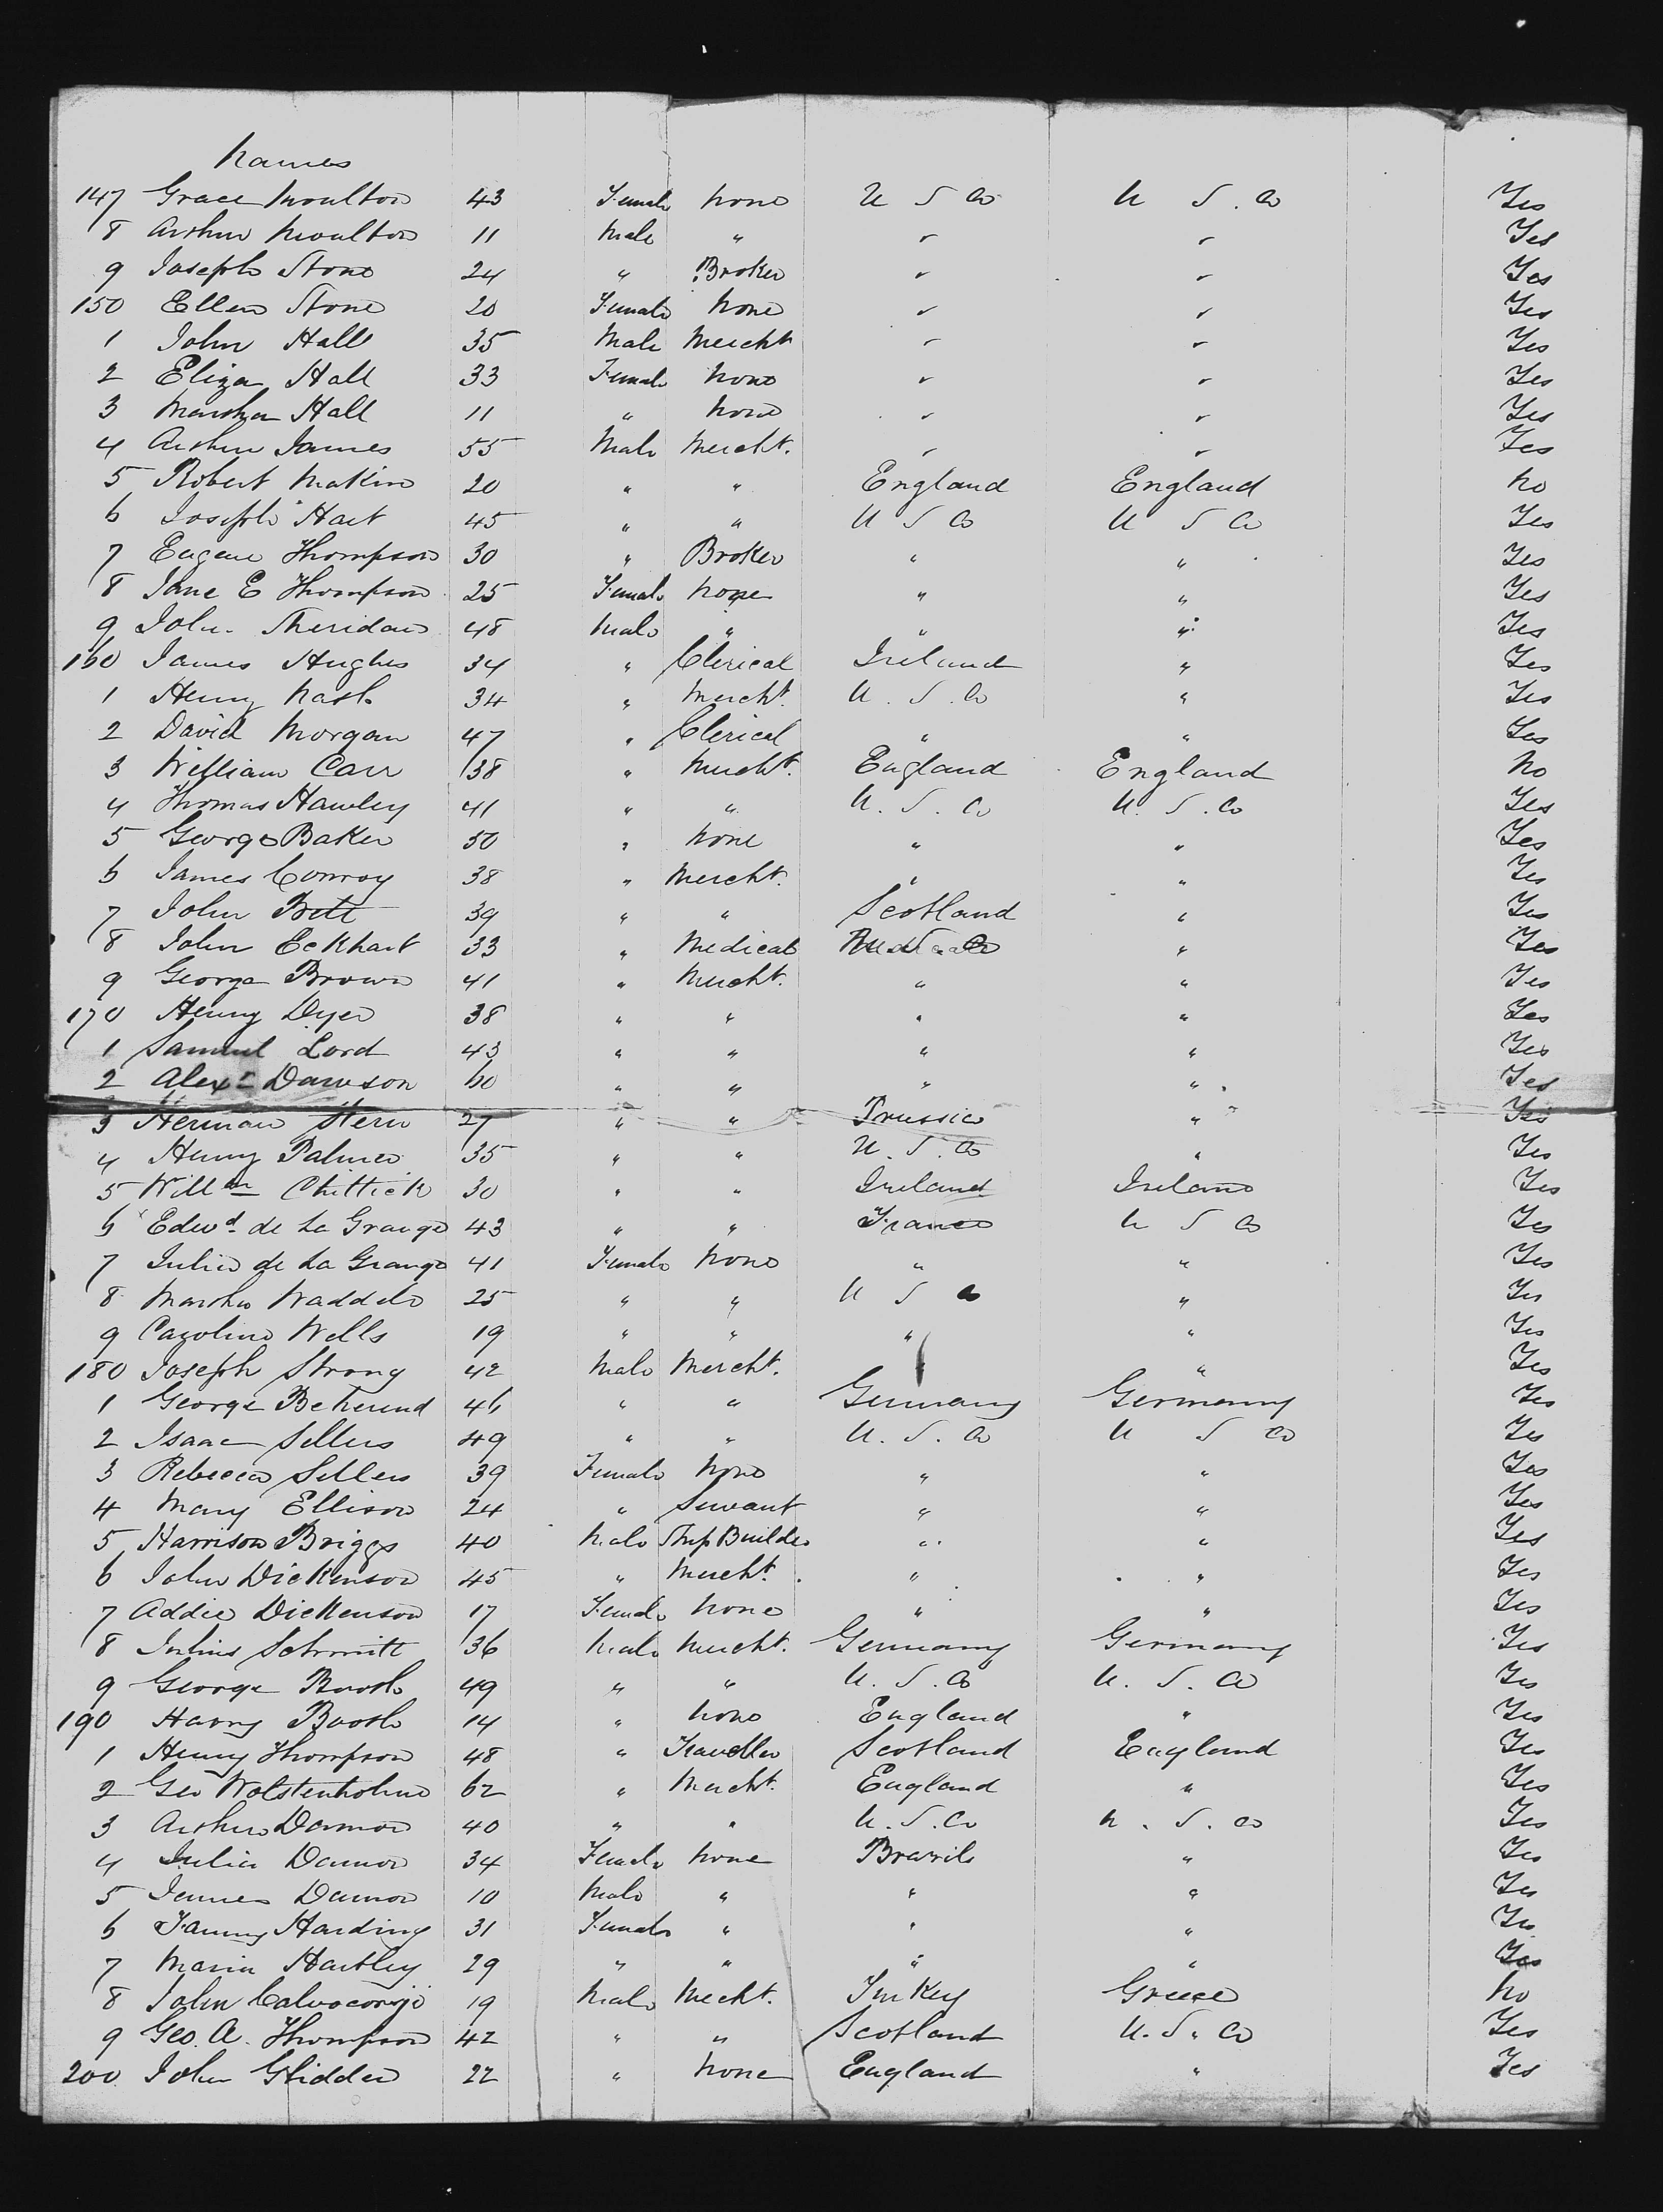 Names
147 Grace Moulton 43 Female None U S A U S. A Yes
8 Arthur Moulton 11 Male " " " Yes
9 Joseph Stone 24 " Broker " " Yes
150 Ellen Stone 20 Female None " " Yes
1 John Hall 35 Male Mercht " " Yes
2 Eliza Hall 33 Female None " " Yes
3 Martha Hall 11 " None " " Yes
4 Arthur James 55 Male Mercht. " " Yes
5 Robert Makin 20 " " England England No
6 Joseph Hart 45 " " U S A U S A Yes
7 Eugene Thompson 30 " Broker " " Yes
8 Jane E Thompson 25 Female None " " Yes
9 John Sheridan 48 Male " " " Yes
160 James Hughes 34 " Clerical Ireland " Yes
1 Henry Nash 34 " Mercht. U. S. A " Yes
2 David Morgan 47 " Clerical " " Yes
3 William Carr 38 " Mercht. England England No
4 Thomas Hawley 41 " " U. S. A U. S. A Yes
5 George Baker 50 " None " " Yes
6 James Conroy 38 " Mercht. " " Yes
7 John Britt 39 " " Scotland " Yes
8 John Eckhart 33 " Medical " Yes
9 George Brown 41 " Mercht. " " Yes
170 Henry Dyer 38 " " " " Yes
1 Samuel Lord 43 " " " " Yes
2 Alexr Dawson 60 " " " " Yes
3 Herman Stern 27 " " Prussia " Yes
4 Henry Palmer 35 " " U. S. A " Yes
5 Willm Chittick 30 " " Ireland Ireland Yes
6 Edwd de La Grange 43 " " France U S A Yes
7 Julia de La Grange 41 Female None " " Yes
8 Martha Waddell 25 " " U S A " Yes
9 Caroline Wells 19 " " " " Yes
180 Joseph Strong 42 Male Mercht. " " Yes
1 George Beherend 46 " " Germany Germany Yes
2 Isaac Sellers 49 " " U. S. A U S A Yes
3 Rebecca Sellers 39 Female None " " Yes
4 Mary Ellison 24 " Servant " " Yes
5 Harrison Briggs 40 Male Ship Builder " " Yes
6 John Dickenson 45 " Mercht. " " Yes
7 Addie Dickenson 17 Female None " " Yes
8 Julius Schmitt 36 Male Mercht. Germany Germany Yes
9 George Booth 49 " " U. S. A U. S. A Yes
190 Harry Booth 14 " None England " Yes
1 Henry Thompson 48 " Traveller Scotland England Yes
2 Geo Wolstenholme 62 " Mercht. England " Yes
3 Arthur Damon 40 " " U. S. A U. S. A Yes
4 Julia Damon 34 Female None Brazils " Yes
5 James Damon 10 Male " " " Yes
6 Fanny Harding 31 Female " " " Yes
7 Maria Hartley 29 " " " " Yes
8 John 19 Male Mercht. Turkey Greece No
9 Geo. A. Thompson 42 " " Scotland U. S. A Yes
200 John Glidden 22 " None England " Yes